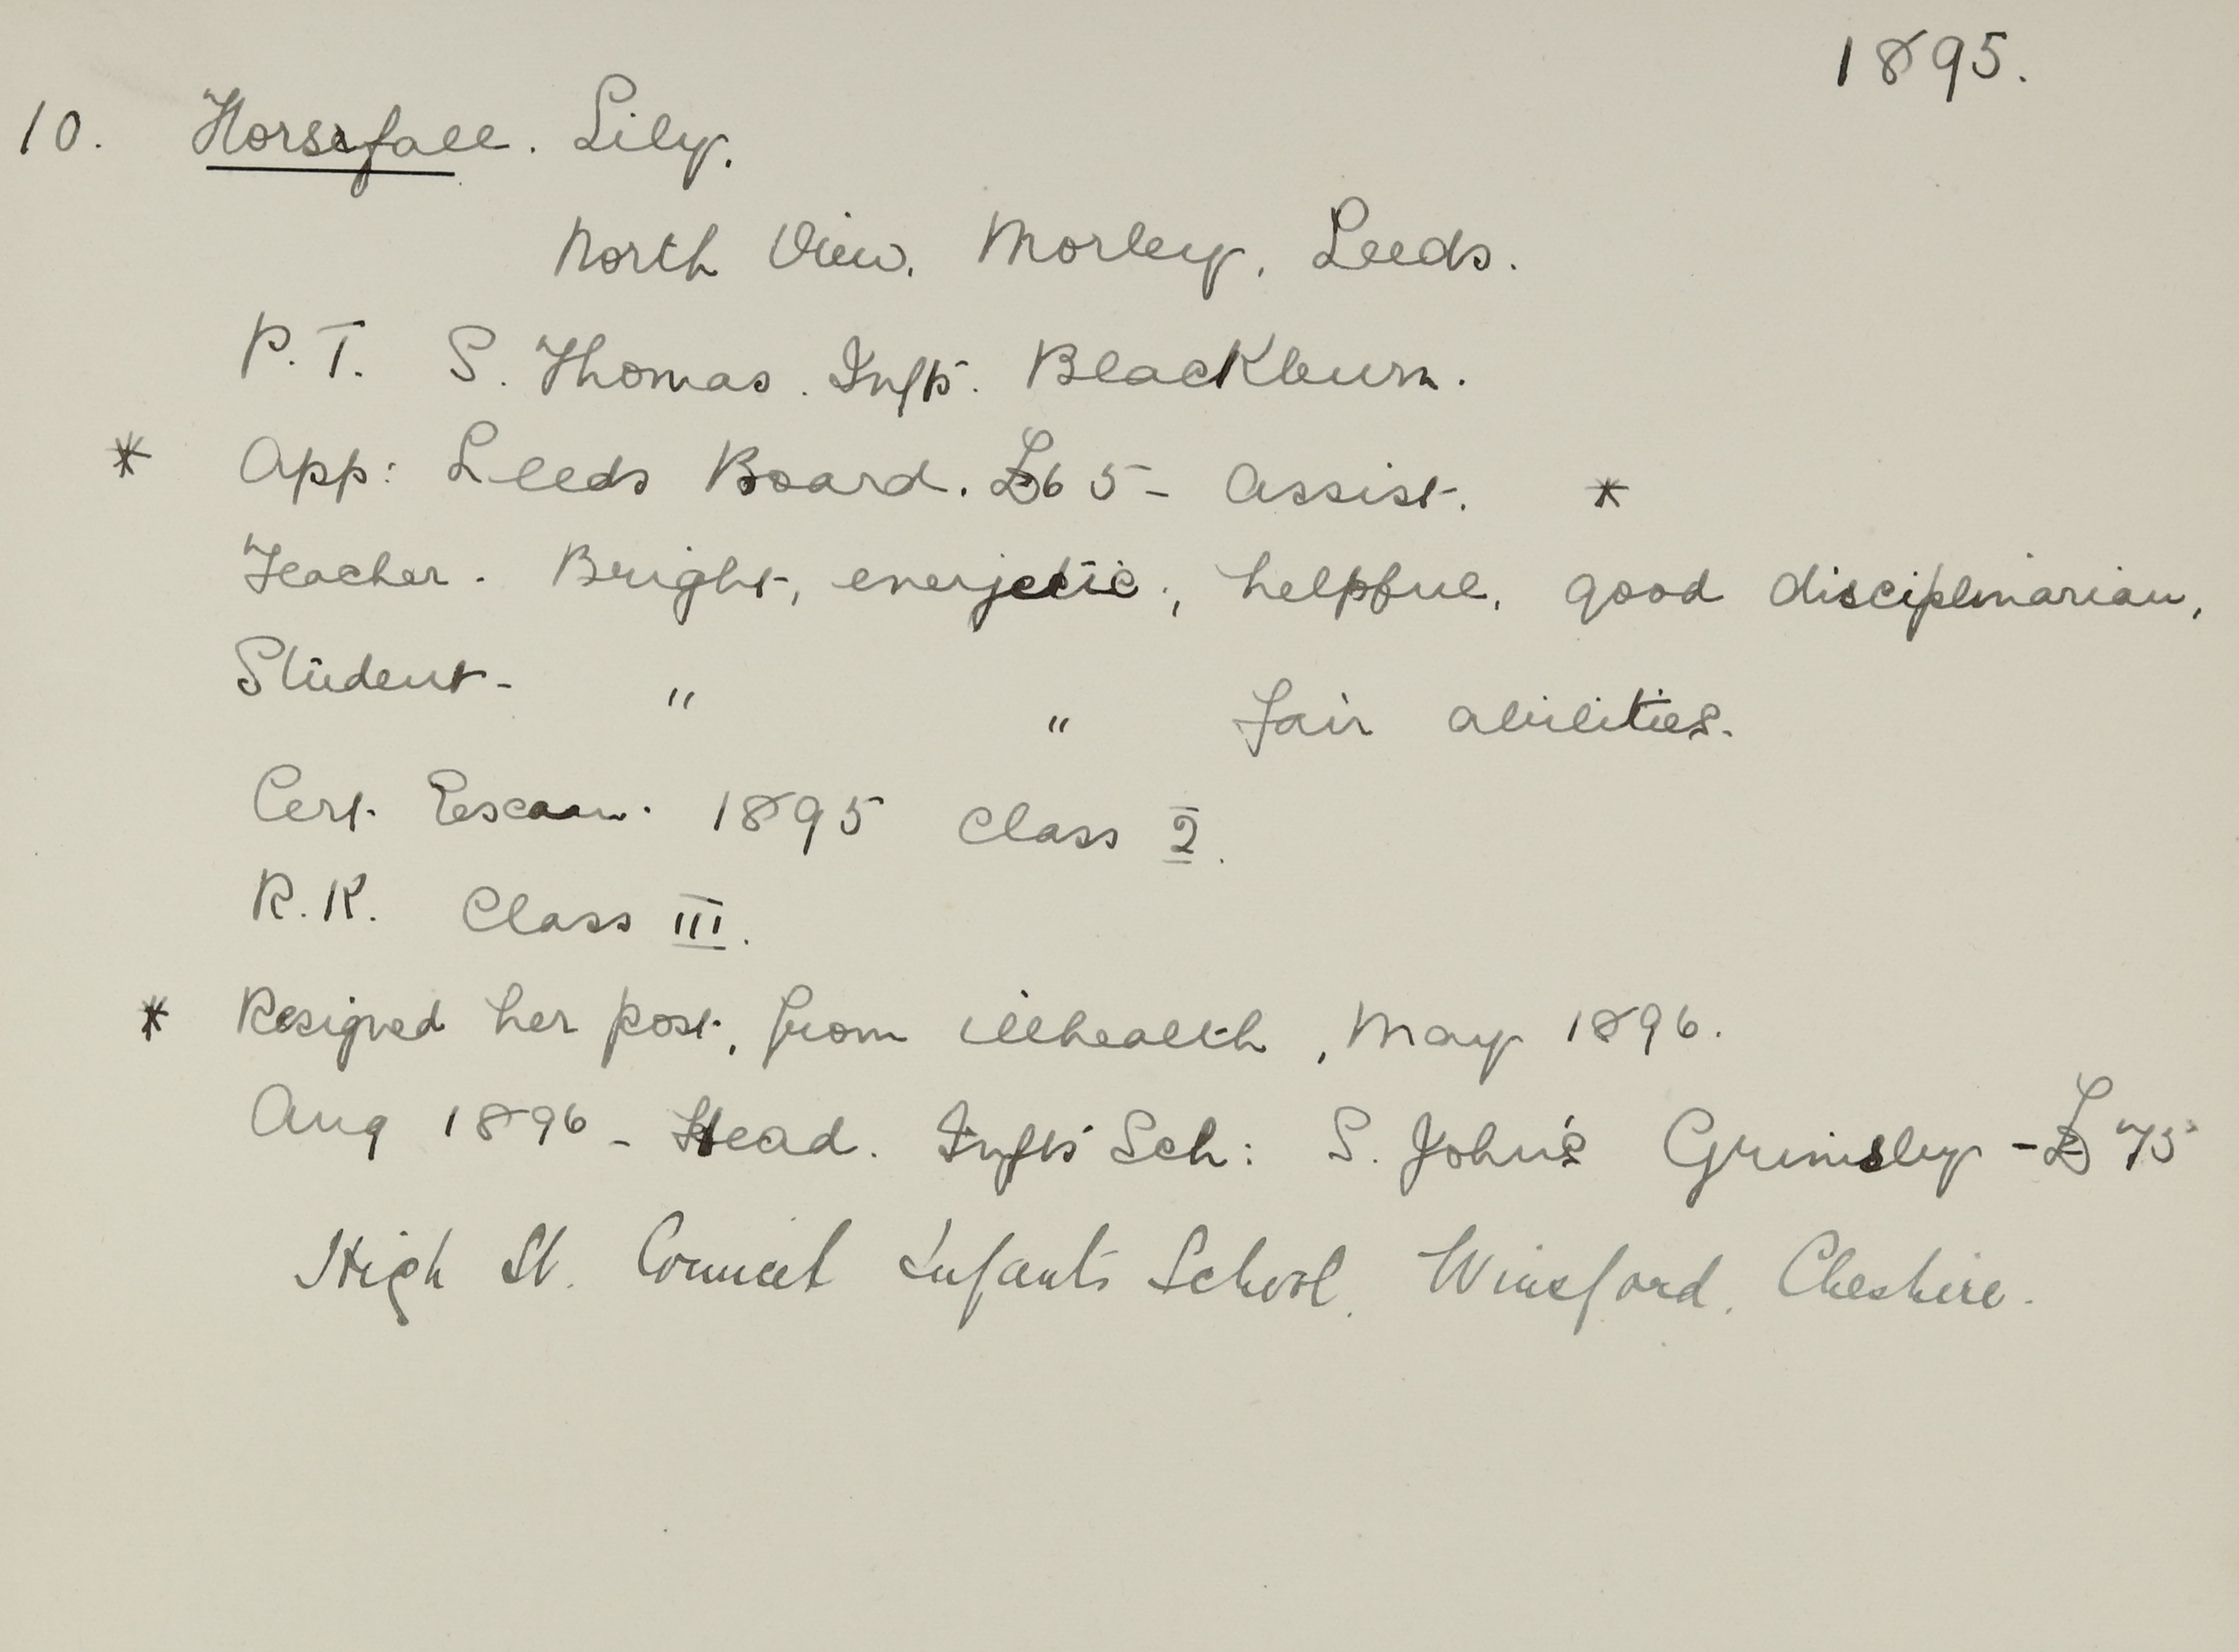 1895.
10. Horsefall. Lily.
North View. Morley. Leeds.
P.T. S. Thomas. Infts. Blackburn.
* App: Leeds Board. £65 - Assist. *
Teacher. Bright, enerjetic, helpful, good disciplinarian,
Student - " " fair abilities.
Cert. Exam. 1895 Class 2.
R.K. Class III.
* Resigned her post, from illhealth, May 1896.
Aug 1896 - Head. Infts' Sch: S. John's Grimsley - £75
High St. Council Infants School. Winsford. Cheshire.